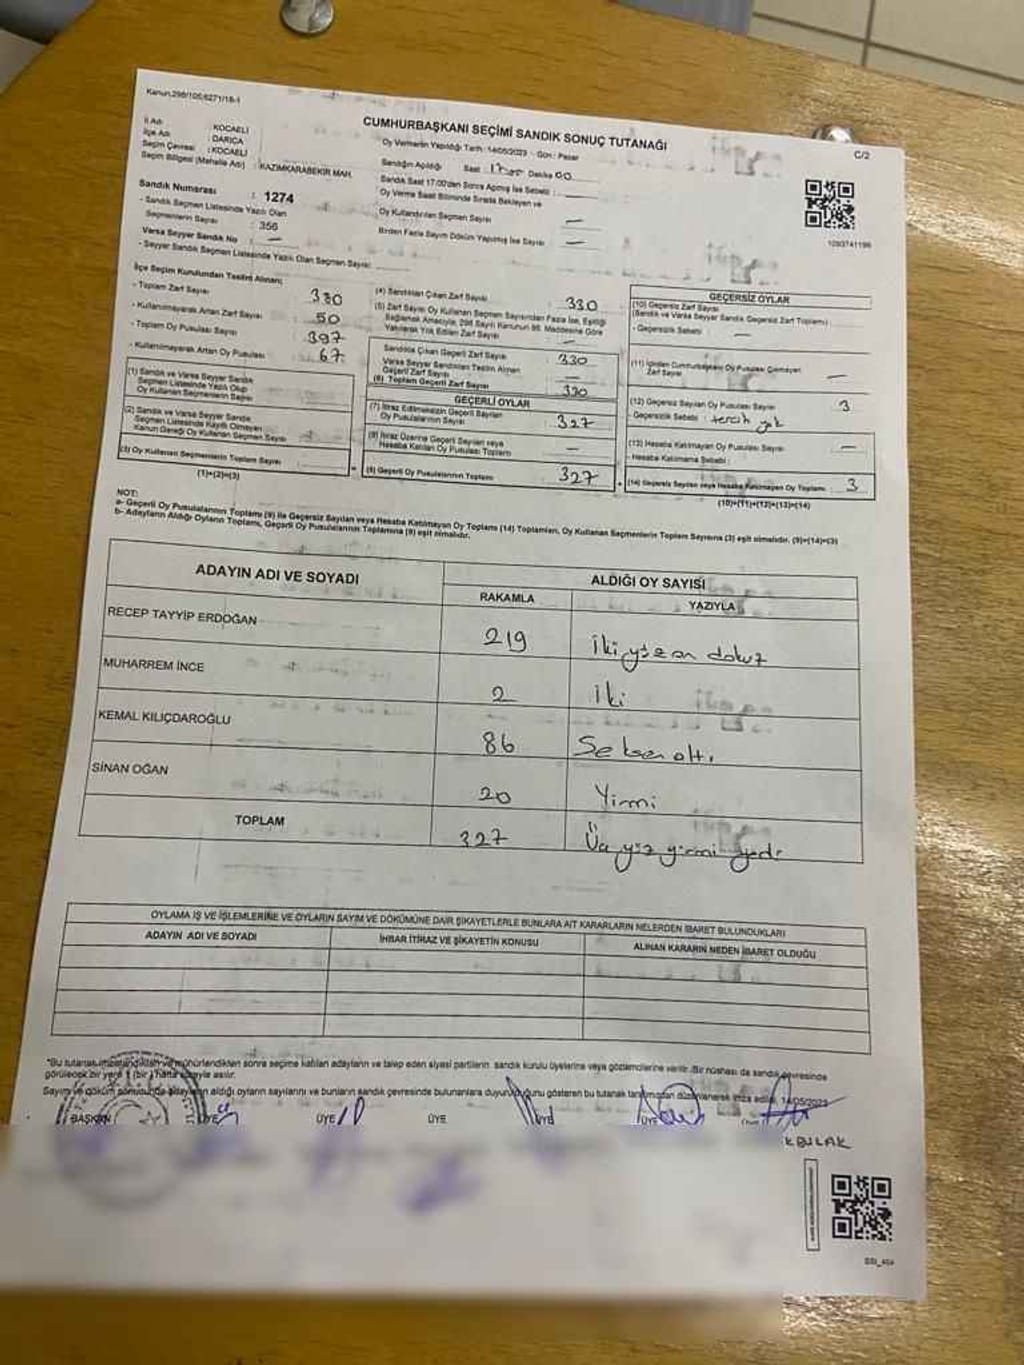 Kanun,298/105,6271/18-1
CUMHURBAŞKANI SEÇİMİ SANDIK SONUÇ TUTANAĞI
C/2
İl Adı : KOCAELİ
İlçe Adı : DARICA
Seçim Çevresi : KOCAELİ
Seçim Bölgesi (Mahalle Adı) : KAZIMKARABEKİR MAH.
Sandık Numarası : 1274
- Sandık Seçmen Listesinde Yazılı Olan
Seçmenlerin Sayısı : 356
Varsa Seyyar Sandık No : —
- Seyyar Sandık Seçmen Listesinde Yazılı Olan Seçmen Sayısı:
Oy Vermenin Yapıldığı Tarih : 14/05/2023 - Gün : Pazar
Sandığın Açıldığı Saat 17:00 Dakika 00
Sandık Saat 17:00'den Sonra Açılmış İse Sebebi :
Oy Verme Saati Bitiminde Sırada Bekleyen ve
Oy Kullandırılan Seçmen Sayısı —
Birden Fazla Sayım Döküm Yapılmış İse Sayısı —
1093741196
İlçe Seçim Kurulundan Teslim Alınan;
- Toplam Zarf Sayısı 380
- Kullanılmayarak Artan Zarf Sayısı 50
- Toplam Oy Pusulası Sayısı 397
- Kullanılmayarak Artan Oy Pusulası 67
(1) Sandık ve Varsa Seyyar Sandık
Seçmen Listesinde Yazılı Olup
Oy Kullanan Seçmenlerin Sayısı
(2) Sandık ve Varsa Seyyar Sandık
Seçmen Listesinde Kayıtlı Olmayan
Kanun Gereği Oy Kullanan Seçmen Sayısı
(3) Oy Kullanan Seçmenlerin Toplam Sayısı
(1)+(2)=(3)
(4) Sandıktan Çıkan Zarf Sayısı 330
(5) Zarf Sayısı Oy Kullanan Seçmen Sayısından Fazla İse, Eşitliği
Sağlamak Amacıyla, 298 Sayılı Kanunun 98. Maddesine Göre
Yakılarak Yok Edilen Zarf Sayısı —
Sandıkta Çıkan Geçerli Zarf Sayısı 330
Varsa Seyyar Sandıktan Teslim Alınan
Geçerli Zarf Sayısı —
(6) Toplam Geçerli Zarf Sayısı 330
GEÇERLİ OYLAR
(7) İtiraz Edilmeksizin Geçerli Sayılan
Oy Pusulalarının Sayısı 327
(8) İtiraz Üzerine Geçerli Sayılan veya
Hesaba Katılan Oy Pusulaları Toplamı —
(9) Geçerli Oy Pusulalarının Toplamı 327
GEÇERSİZ OYLAR
(10) Geçersiz Zarf Sayısı
(Sandık ve Varsa Seyyar Sandık Geçersiz Zarf Toplamı)
- Geçersizlik Sebebi : —
(11) İçinden Cumhurbaşkanı Oy Pusulası Çıkmayan
Zarf Sayısı —
(12) Geçersiz Sayılan Oy Pusulası Sayısı 3
- Geçersizlik Sebebi : tercih yok
(13) Hesaba Katılmayan Oy Pusulası Sayısı —
- Hesaba Katılmama Sebebi :
(14) Geçersiz Sayılan veya Hesaba Katılmayan Oy Toplamı 3
(10)+(11)+(12)+(13)=(14)
NOT:
a- Geçerli Oy Pusulalarının Toplamı (9) ile Geçersiz Sayılan veya Hesaba Katılmayan Oy Toplamı (14) Toplamları, Oy Kullanan Seçmenlerin Toplam Sayısına (3) eşit olmalıdır. (9)+(14)=(3)
b- Adayların Aldığı Oyların Toplamı, Geçerli Oy Pusulalarının Toplamına (9) eşit olmalıdır.
ADAYIN ADI VE SOYADI
ALDIĞI OY SAYISI
RAKAMLA YAZIYLA
RECEP TAYYİP ERDOĞAN 219 ikiyüz on dokuz
MUHARREM İNCE 2 iki
KEMAL KILIÇDAROĞLU 86 Seksen altı
SİNAN OĞAN 20 Yirmi
TOPLAM 327 Üç yüz yirmi yedi
OYLAMA İŞ VE İŞLEMLERİNE VE OYLARIN SAYIM VE DÖKÜMÜNE DAİR ŞİKAYETLERLE BUNLARA AİT KARARLARIN NELERDEN İBARET BULUNDUKLARI
ADAYIN ADI VE SOYADI İHBAR İTİRAZ VE ŞİKAYETİN KONUSU ALINAN KARARIN NEDEN İBARET OLDUĞU
*Bu tutanak imzalandıktan ve mühürlendikten sonra seçime katılan adayların ve talep eden siyasi partilerin sandık kurulu üyelerine veya gözlemcilerine verilir. Bir nüshası da sandık çevresinde
görülecek bir yere 1 (bir) hafta süreyle asılır.
Sayım ve döküm sonucunda adayların aldığı oyların sayılarını ve bunların sandık çevresinde bulunanlara duyurulduğunu gösteren bu tutanak tarafımızdan düzenlenerek imza edildi. 14/05/2023
BAŞKAN ÜYE ÜYE ÜYE ÜYE ÜYE